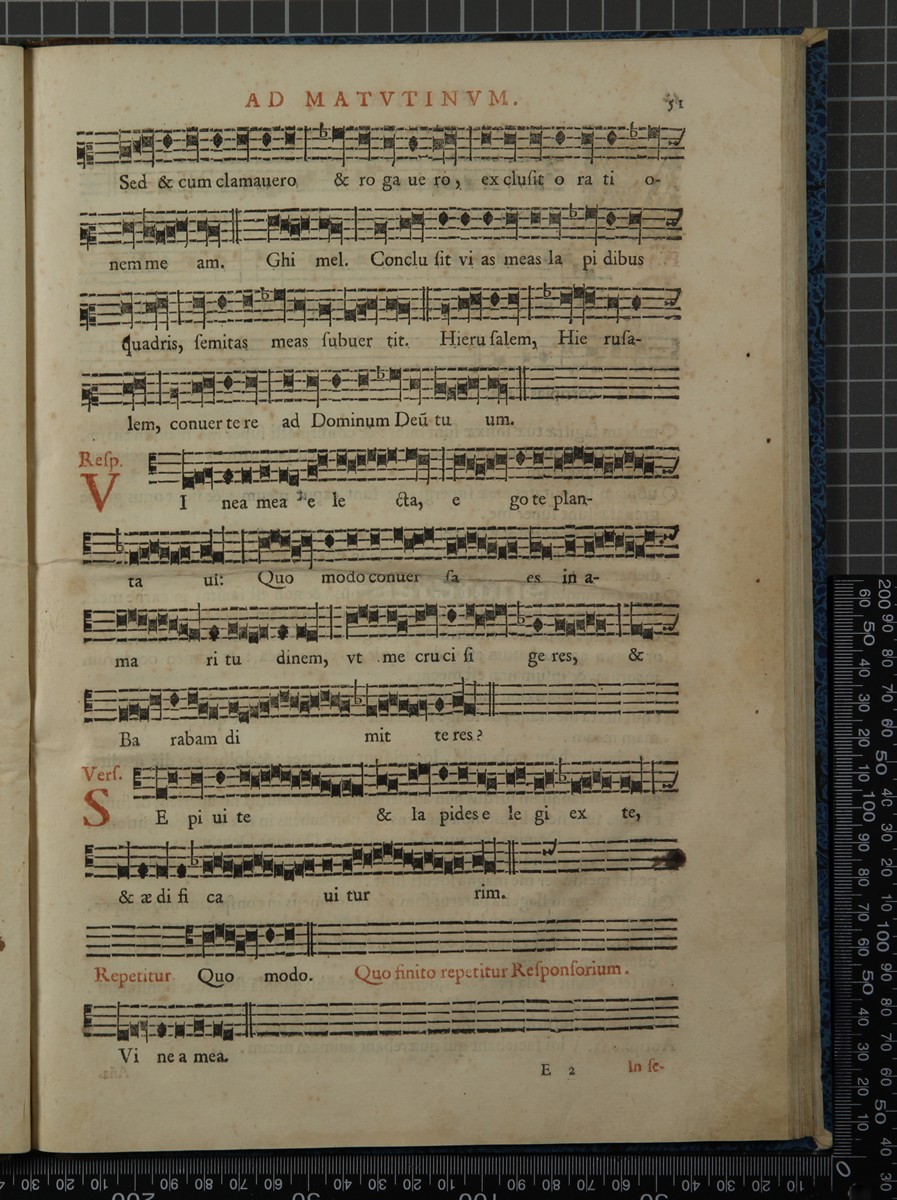 AD MATVTINVM. 51
Sed & cum clamauero & ro ga ue ro, ex clusit o ra ti o-
nem me am. Ghi mel. Conclu sit vi as meas la pi dibus
quadris, semitas meas subuer tit. Hieru salem, Hie rusa-
lem, conuer te re ad Dominum Deū tu um.
Resp.
VI nea mea e le cta, e go te plan-
ta ui: Quo modo conuer sa es in a-
ma ri tu dinem, vt me cru ci fi ge res, &
Ba rabam di mit te res?
Vers.
SE pi ui te & la pides e le gi ex te,
& æ di fi ca ui tur rim.
Repetitur Quo modo. Quo finito repetitur Responsorium.
Vi ne a mea.
E 2 In se-